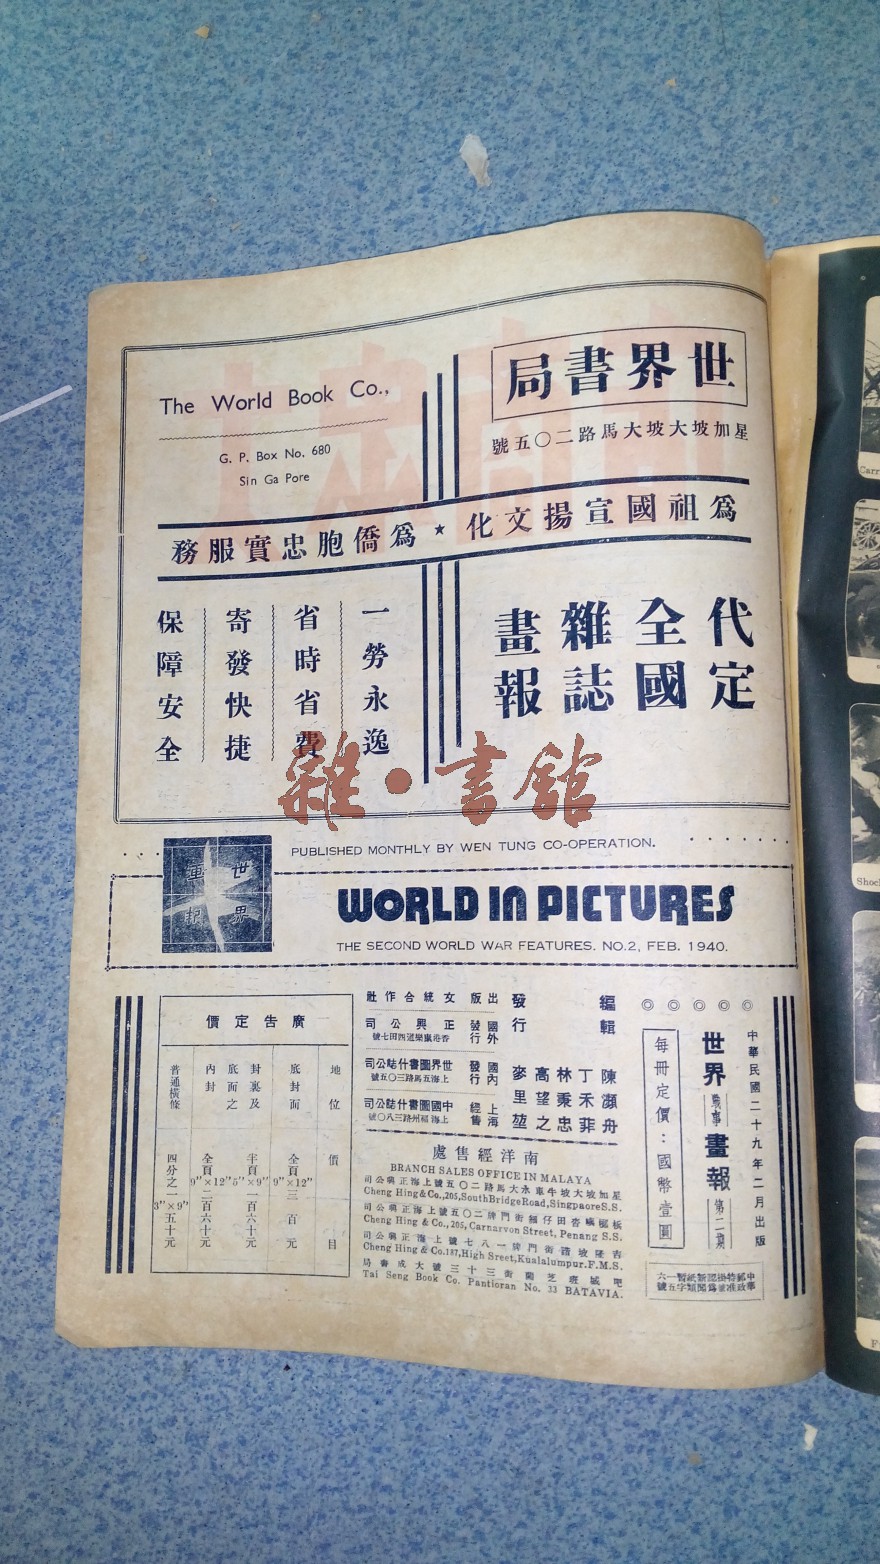 世界書局
星加坡大坡大馬路二〇五號
The World Book Co.,
G. P. Box No. 680
Sin Ga Pore
爲祖國宣揚文化★爲僑胞忠實服務
代定
全國
雜誌
畫報
一勞永逸
省時省費
寄發快捷
保障安全
雜·書館
PUBLISHED MONTHLY BY WEN TUNG CO-OPERATION.
世界
畫報
WORLD IN PICTURES
THE SECOND WORLD WAR FEATURES. NO.2, FEB. 1940.
中華民國二十九年二月出版
世界戰事畫報第二期
◎◎◎◎◎
每冊定價：國幣壹圓
編輯
陳瀕舟
丁禾菲
林秉忠
高望之
麥里堃
發行
出版 文統合作社
國外發行 正興公司
國內發行 世界圖書什誌公司
上海五馬路三〇五號
上海經售 中國圖書什誌公司
上海福州路三八〇號
南洋經售處
BRANCH SALES OFFICE IN MALAYA
星加坡大坡牛車水大馬路二〇五號上海正興公司
Cheng Hing & Co., 205, South Bridge Road, Singpaore S.S.
Cheng Hing & Co., 205, Carnarvon Street, Penang S.S.
吉隆坡諧街門牌一八七號上海正興公司
Cheng Hing & Co. 187, High Sreet, Kualalumpur. F.M.S.
吧城班芝蘭街三十三號大成書局
Tai Seng Book Co. Pantioran No. 33 BATAVIA.
廣告定價
地位 價目
底封面 全頁 9"×12" 三百元
封裏及底面之 半頁 9"×5" 一百六十元
內封 全頁 9"×12" 二百六十元
普通橫條 四分之一 3"×9" 五十元